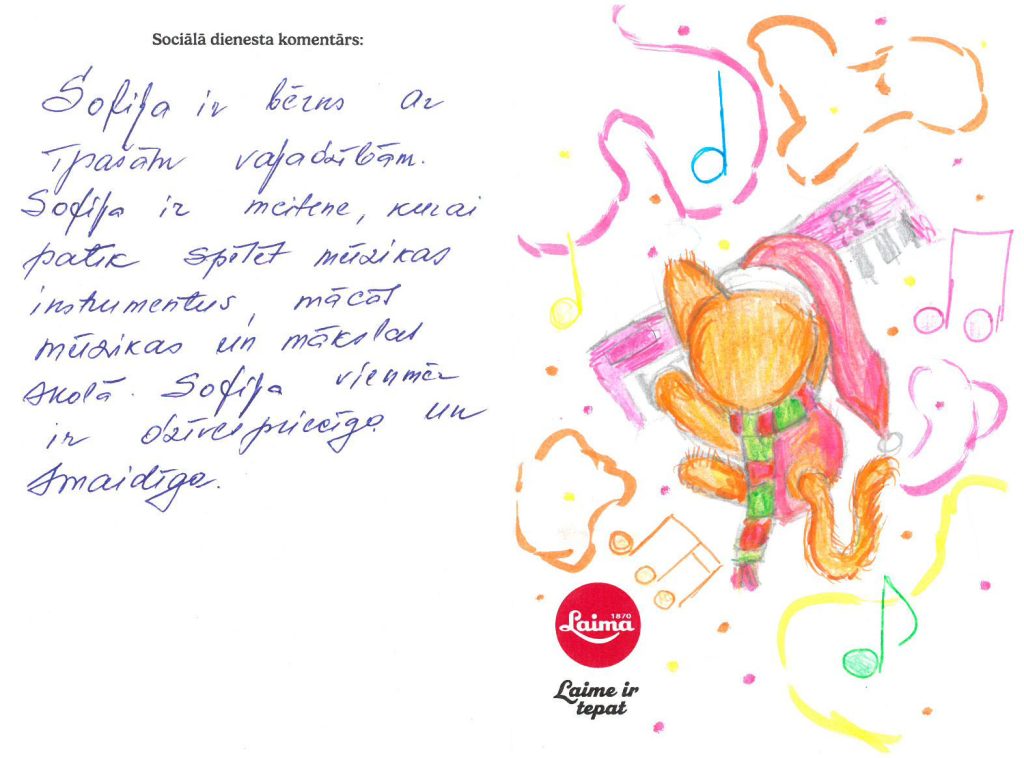 Sociālā dienesta komentārs:
Sofija ir bērns ar
īpašām vajadzībām.
Sofija ir meitene, kurai
patīk spēlēt mūzikas
instrumentus, mācās
mūzikas un mākslas
skolā. Sofija vienmēr
ir dzīvespriecīga un
smaidīga.
1870
Laima
Laime ir
tepat